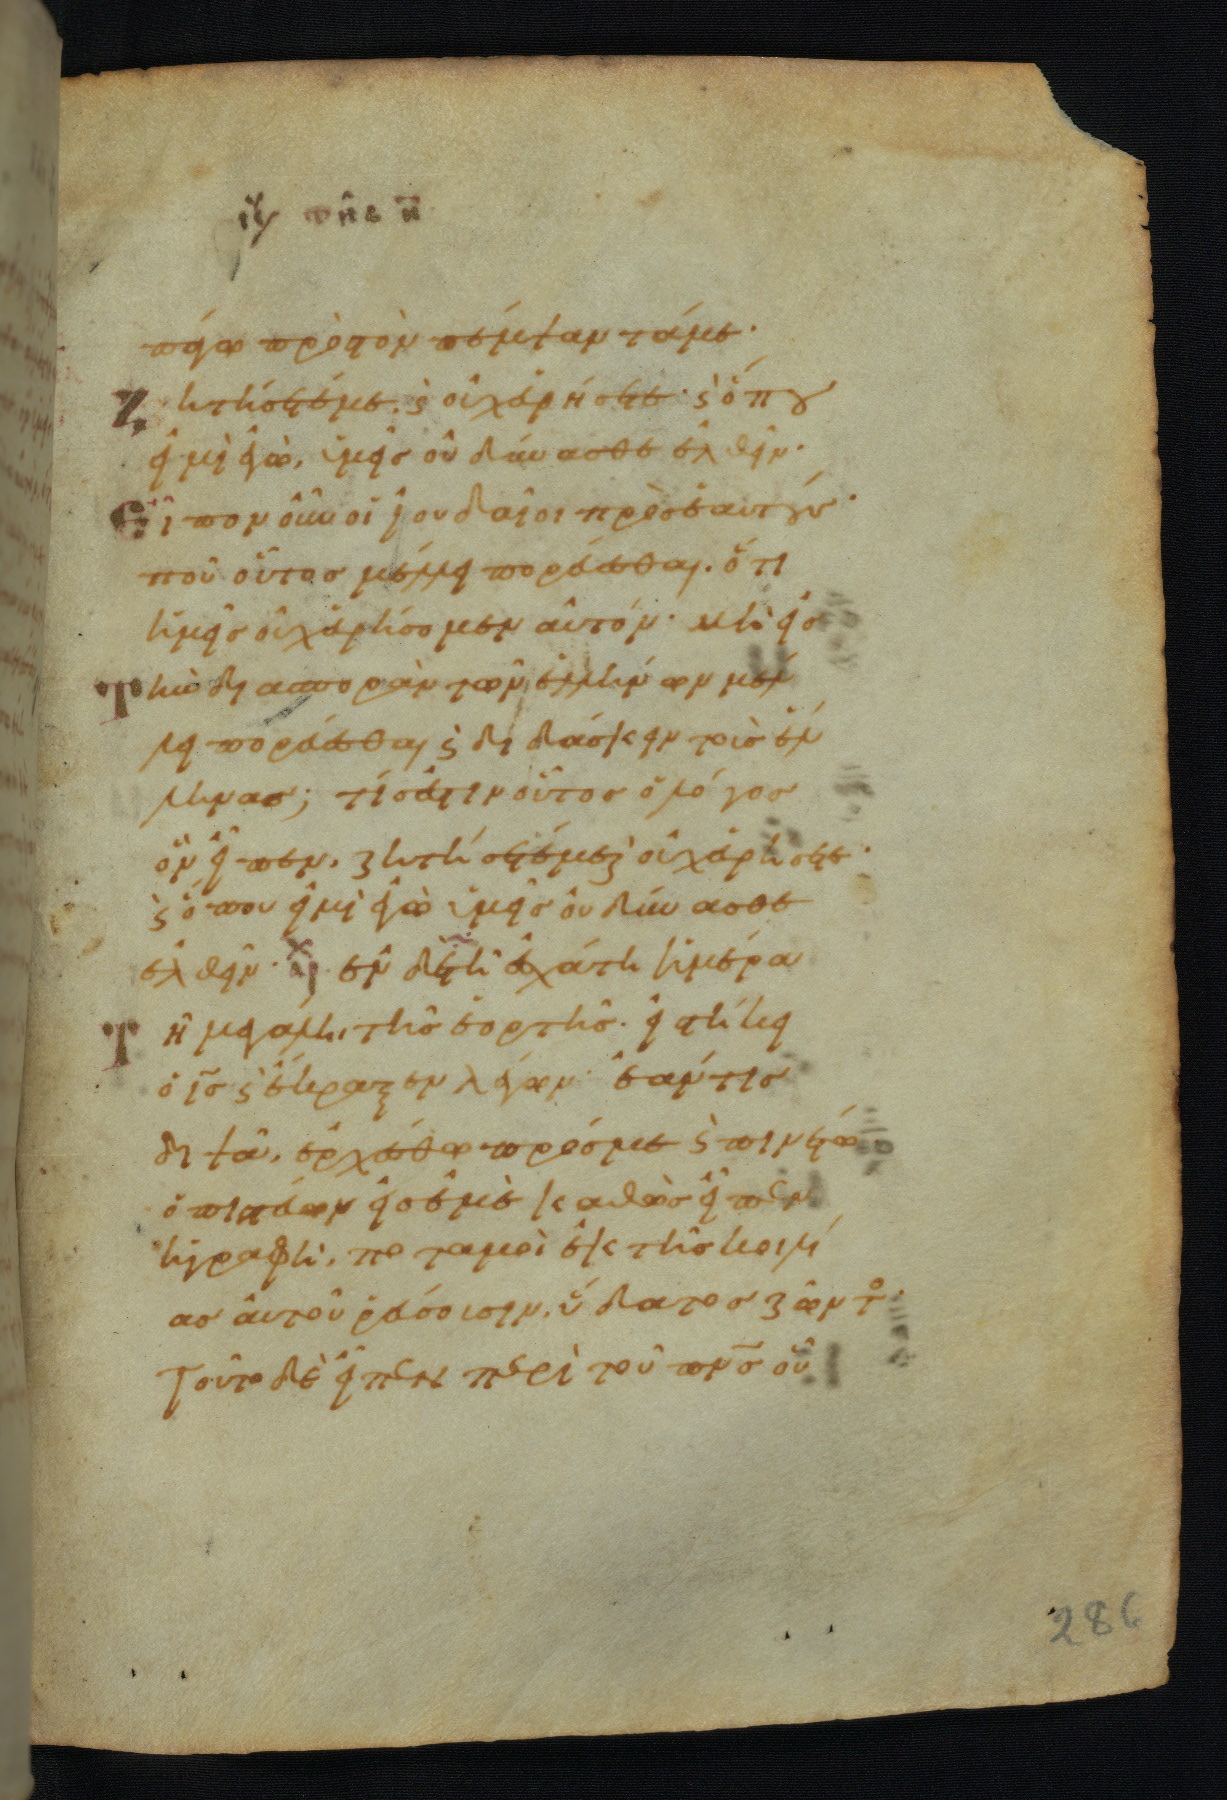 πάγω πρὸς τὸν πέμψαντά με·
Ζητήσετέ με, ϗ οὐχ εὑρήσετε· ϗ ὅπου
εἰμὶ ἐγὼ, ὑμεῖς οὐ δύνασθε ἐλθεῖν·
Εἶπον οὖν οἱ ἰουδαῖοι πρὸς ἑαυτούς·
ποῦ οὗτος μέλλει πορεύεσθαι· ὅτι
ἡμεῖς οὐχ εὑρήσομεν αὐτόν· μὴ εἰς
Τὴν διασπορὰν τῶν ἑλλήνων μέλ
λει πορεύεσθαι ϗ διδάσκειν τοὺς ἕλ
ληνας; τίς ἐστιν οὗτος ὁ λόγος
ὃν εἶπεν, ζητήσετέ με ϗ οὐχ εὑρήσετε·
ϗ ὅπου εἰμὶ ἐγὼ ὑμεῖς οὐ δύνασθε
ἐλθεῖν· ἐν δὲ τῆ ἐσχάτη ἡμέρα
Τῆ μεγάλη, τῆς ἑορτῆς· εἱστήκει
ὁ ις ϗ ἔκραξεν λέγων· ἐάν τις
διψᾶ, ἐρχέσθω πρός με ϗ πινέτω
ὁ πιστεύων εἰς ἐμὲ καθὼς εἶπεν
ἡ γραφή, ποταμοὶ ἐκ τῆς κοιλί
ας αὐτοῦ ῥεύσουσιν, ὕδατος ζῶντο·
Τοῦτο δὲ εἶπεν περὶ τοῦ πνς οὗ
286